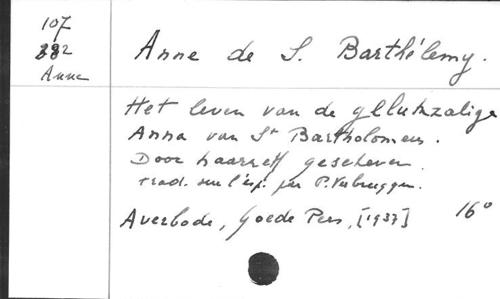 107
882
Anne
Anne de S. Barthélemy.
Het leven van de gelukzalige
Anna van St Bartholomeus.
Door haarzelf geschreven.
trad. sur l'esp. par P. Verbruggen.
Averbode, Goede Pers, [1937] 16°